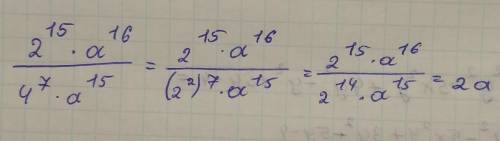 2^15 · a^16 / 4^7 · a^15 = 2^15 · a^16 / (2^2)^7 · a^15 = 2^15 · a^16 / 2^14 · a^15 = 2a